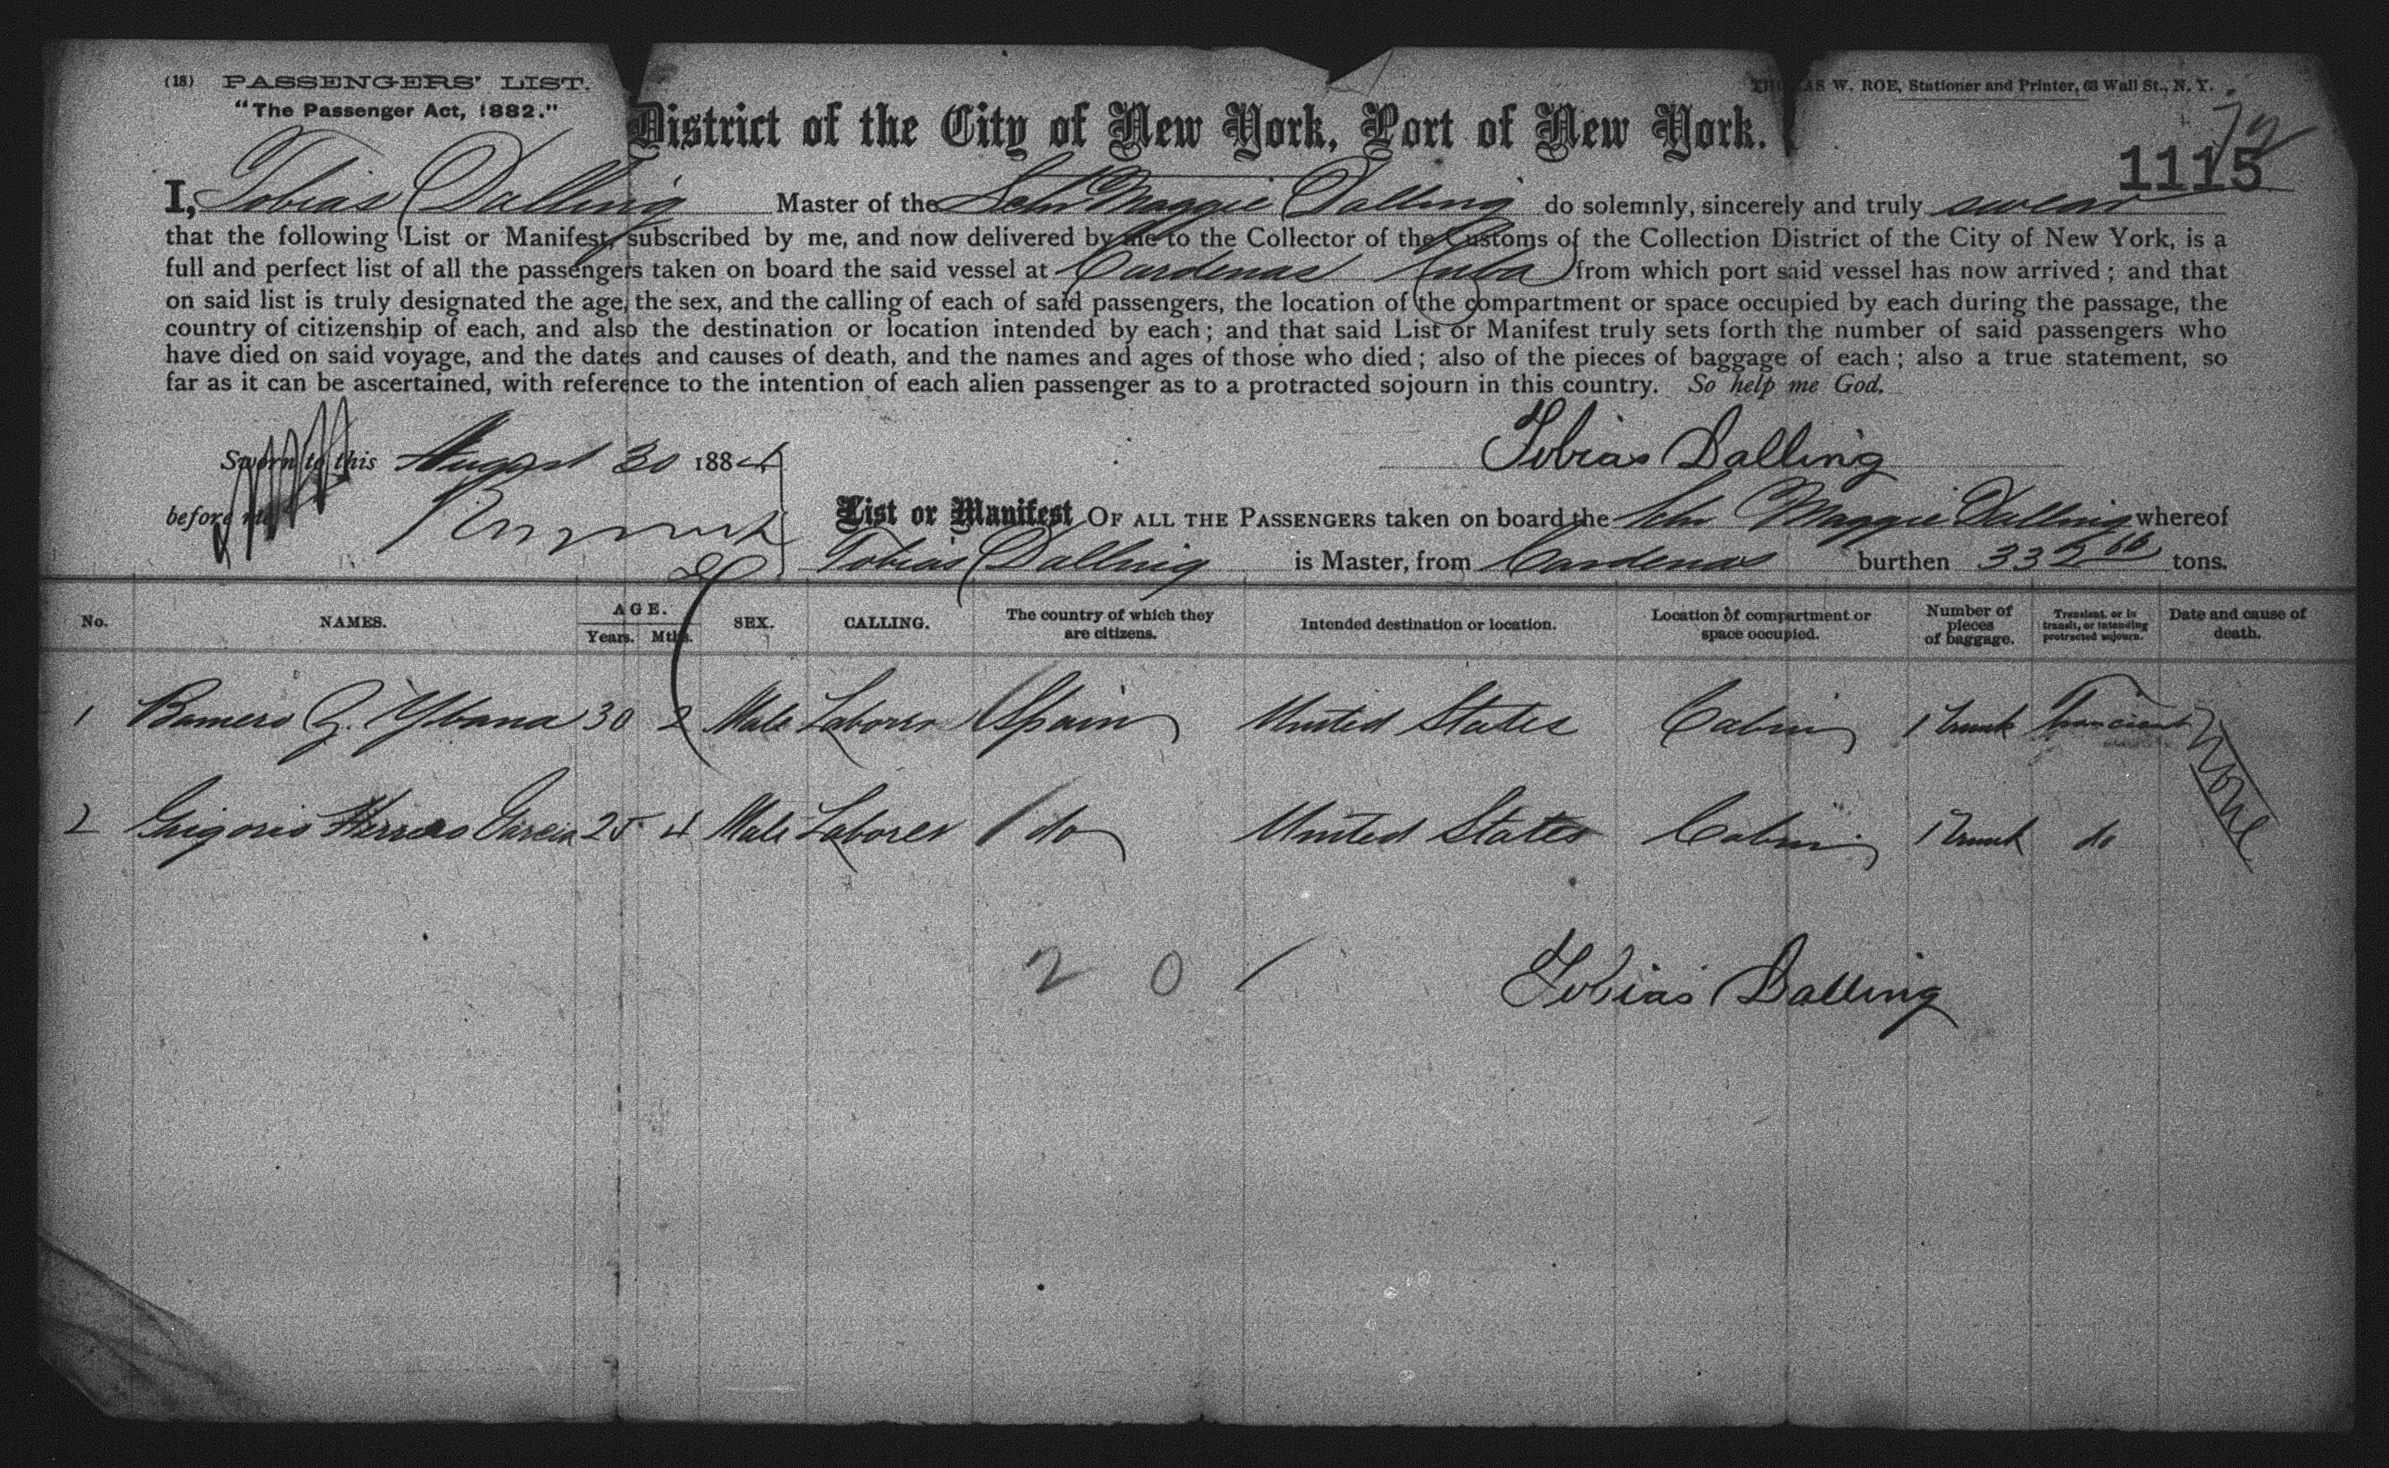 (18) PASSENGERS' LIST.
"The Passenger Act, 1882."
THOMAS W. ROE, Stationer and Printer, 63 Wall St., N. Y.
District of the City of New York, Port of New York.
1115
I, Tobias Dalling Master of the Schr Maggie Dalling do solemnly, sincerely and truly swear
that the following List or Manifest, subscribed by me, and now delivered by me to the Collector of the Customs of the Collection District of the City of New York, is a
full and perfect list of all the passengers taken on board the said vessel at Cardenas Cuba from which port said vessel has now arrived; and that
on said list is truly designated the age, the sex, and the calling of each of said passengers, the location of the compartment or space occupied by each during the passage, the
country of citizenship of each, and also the destination or location intended by each; and that said List or Manifest truly sets forth the number of said passengers who
have died on said voyage, and the dates and causes of death, and the names and ages of those who died; also of the pieces of baggage of each; also a true statement, so
far as it can be ascertained, with reference to the intention of each alien passenger as to a protracted sojourn in this country. So help me God.
Sworn to this August 30 1884 Tobias Dalling
before me
List or Manifest OF ALL THE PASSENGERS taken on board the Schr Maggie Dalling whereof
Tobias Dalling is Master, from Cardenas burthen 332 tons.
No. NAMES. AGE. Years. Mths. SEX. CALLING. The country of which they are citizens. Intended destination or location. Location of compartment or space occupied. Number of pieces of baggage. Transient, or in transit, or intending protracted sojourn. Date and cause of death.
1 G. Ybana 30 2 Male Laborer Spain United States Cabin 1 trunk Trancient None
2 Grigorio Herrero Garcia 25 4 Male Laborer do United States Cabin 1 trunk do
2 0 /
Tobias Dalling